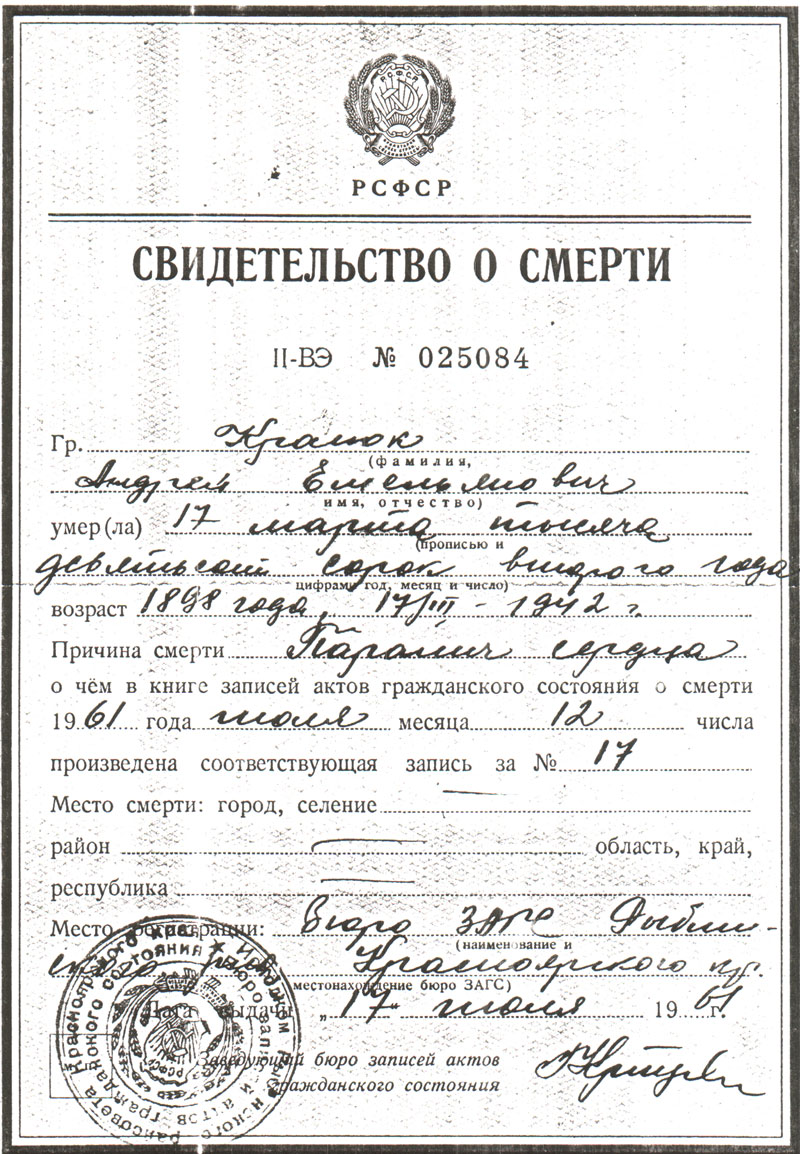 РСФСР
РСФСР
СВИДЕТЕЛЬСТВО О СМЕРТИ
II-ВЭ № 025084
Гр.
(фамилия,
Андрей Емельянович
имя, отчество)
умер(ла) 17 марта тысяча
(прописью и
девятьсот сорок второго года
цифрами год, месяц и число)
возраст 1898 года 17/III - 1942 г.
Причина смерти Паралич сердца
о чём в книге записей актов гражданского состояния о смерти
1961 года июля месяца 12 числа
произведена соответствующая запись за № 17
Место смерти: город, селение —
район — область, край,
республика —
Место регистрации: Бюро ЗАГС Рыбин-
(наименование и
ского Красноярского
местонахождение бюро ЗАГС)
Дата выдачи „17" июля 1961 г.
Заведующий бюро записей актов
гражданского состояния